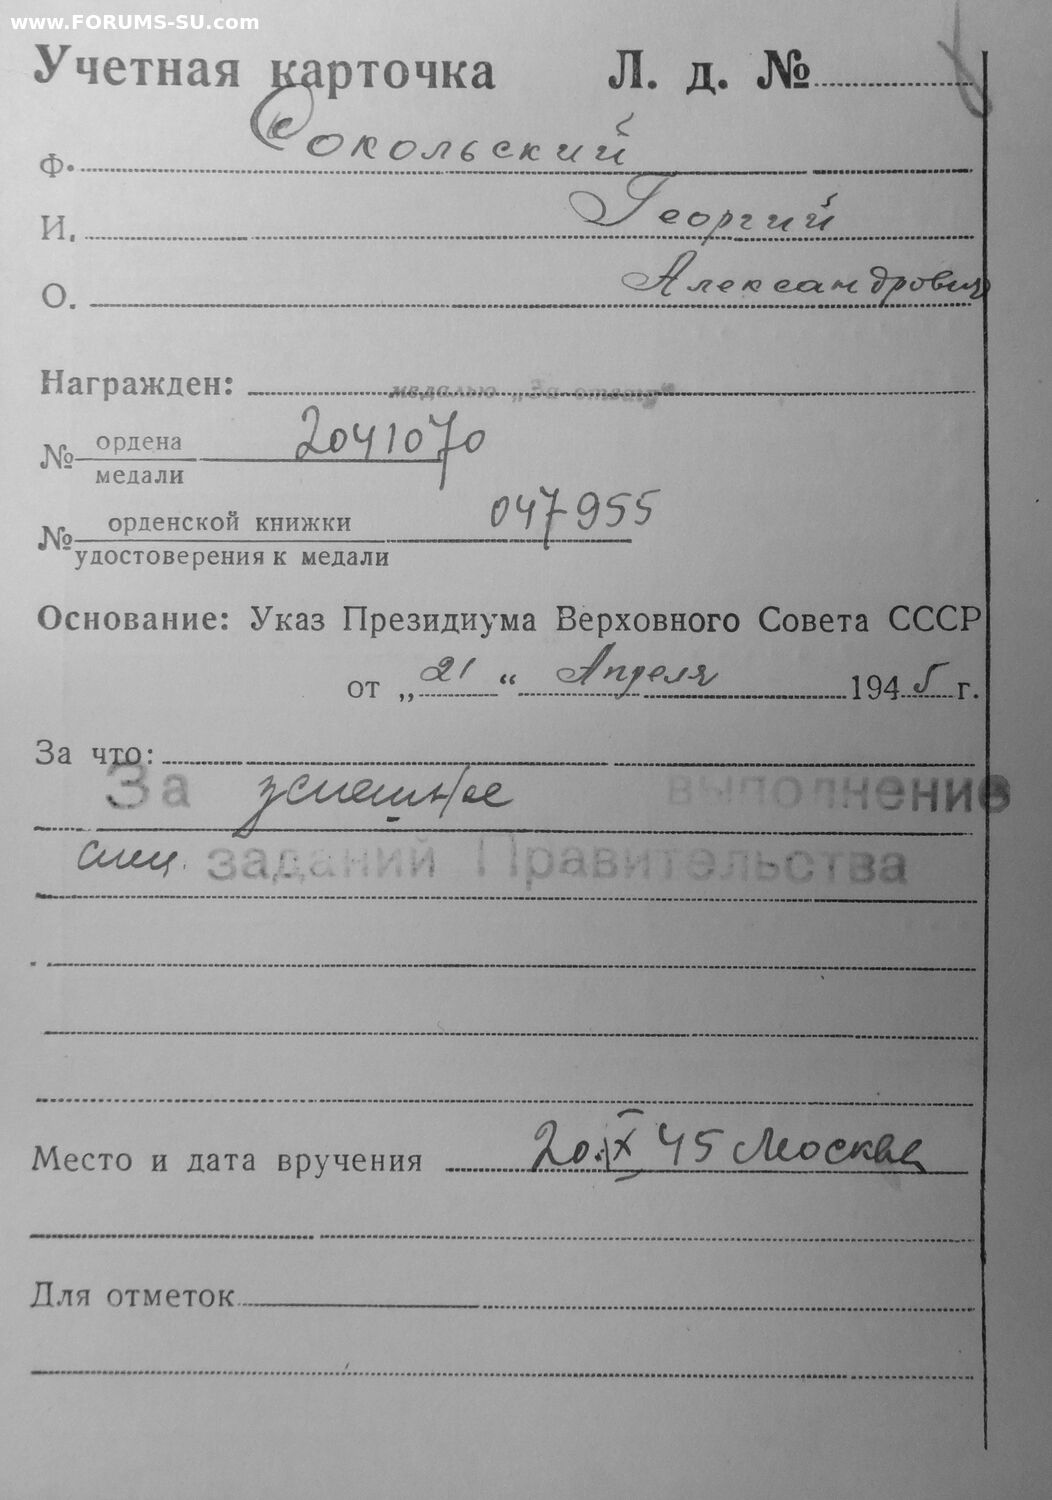 www.FORUMS-SU.com
Учетная карточка Л. д. №
Ф. Сокольский
И. Георгий
О. Александрович
Награжден: медалью „За отвагу“
№ ордена / медали 2041070
№ орденской книжки / удостоверения к медали 047955
Основание: Указ Президиума Верховного Совета СССР
от „21“ Апреля 1945 г.
За что:
За успешное выполнение
спец. заданий Правительства
Место и дата вручения 20.X 45 Москва
Для отметок